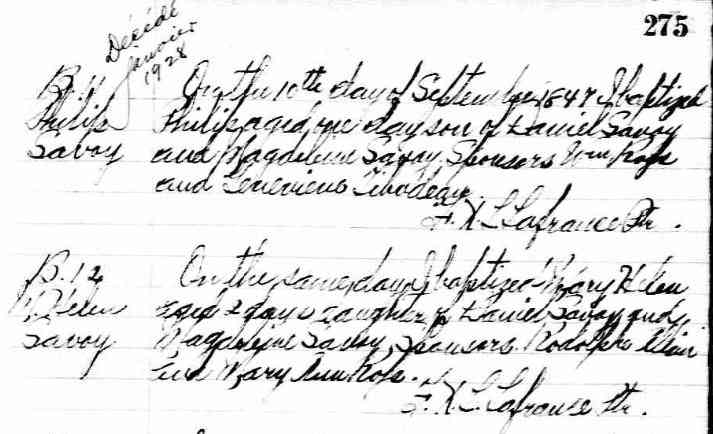 275
Décédé
janvier
1928
B. 11
Philip
Savoy
On the 10th day of September 1847 I baptized
Philip aged one day son of Daniel Savoy
and Magdeleine Savoy Sponsors Wm Ross
and Genevieve Tibodeau.
F. X. L. Lafrance Ptr.
B. 12
Helen
Savoy
On the same day I baptized Mary Helen
aged 2 days daughter of Daniel Savoy and
Magdeleine Savoy, Sponsors Rodolphe
and Mary Ann Ross.
F. X. L. Lafrance Ptr.